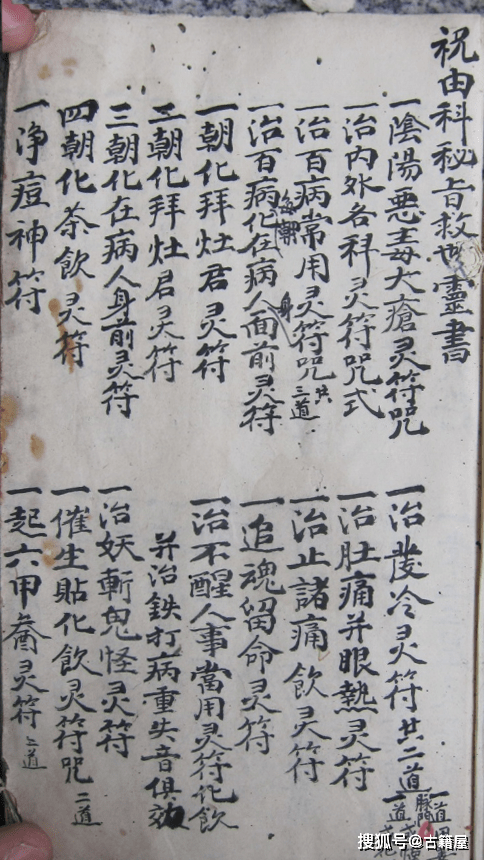 祝由科秘旨救世靈書
一陰陽惡毒大瘡灵符咒
一治内外各科灵符咒式
一治百病常用灵符咒共三道
一治百病化在病人面前灵符
每朝
身
一朝化拜灶君灵符
二朝化拜灶君灵符
三朝化在病人身前灵符
四朝化茶飲灵符
一净痘神符
一治發冷灵符共二道
一治肚痛并眼熱灵符
一治止諸痛飲灵符
一追魂留命灵符
一治不醒人事當用灵符化飲
并治鉄打病重失音俱效
一治妖斬鬼怪灵符
一催生貼化飲灵符咒二道
一起六甲灵符二道
一道
一道
搜狐号@古籍屋